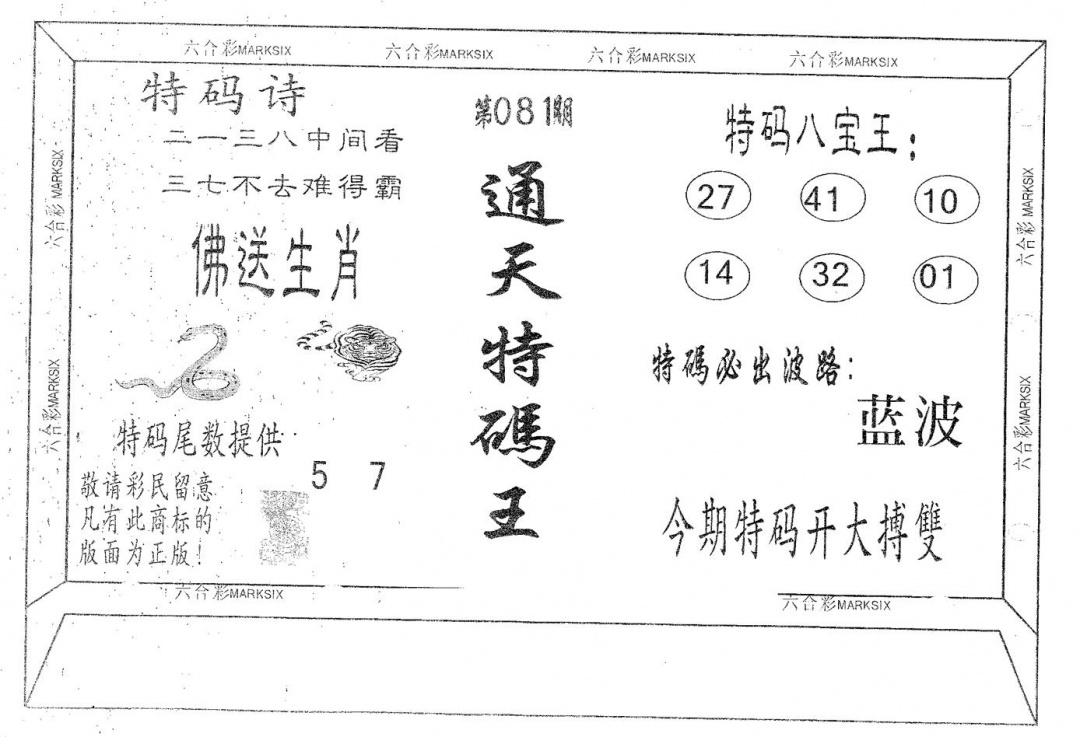 六合彩MARKSIX 六合彩MARKSIX 六合彩MARKSIX 六合彩MARKSIX
特码诗
二一三八中间看
三七不去难得霸
佛送生肖
特码尾数提供
5 7
敬请彩民留意
凡有此商标的
版面为正版！
第081期
通天特碼王
特码八宝王：
27 41 10
14 32 01
特碼必出波路：
蓝波
今期特码开大搏雙
六合彩 MARKSIX
六合彩MARKSIX
六合彩 MARKSIX
六合彩MARKSIX
六合彩MARKSIX 六合彩MARKSIX